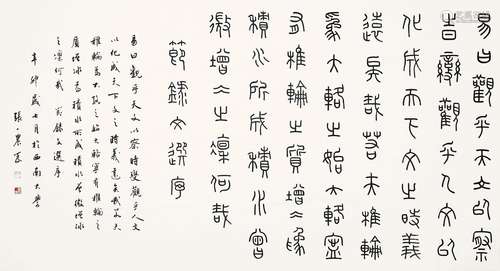 易曰觀乎天文以察
時變觀乎人文以
化成天下文之時義
遠矣哉若夫椎輪
爲大輅之始大輅寧
有椎輪之質增冰爲
積水所成積水曾
微增冰之凜何哉
節錄文選序
易曰觀乎天文以察時變觀乎人文
以化成天下文之時義遠矣哉若夫
椎輪爲大輅之始大輅寧有椎輪之
質增冰爲積水所成積水曾微增冰
之凜何哉 節錄文選序
辛卯歲七月於西南大學
張